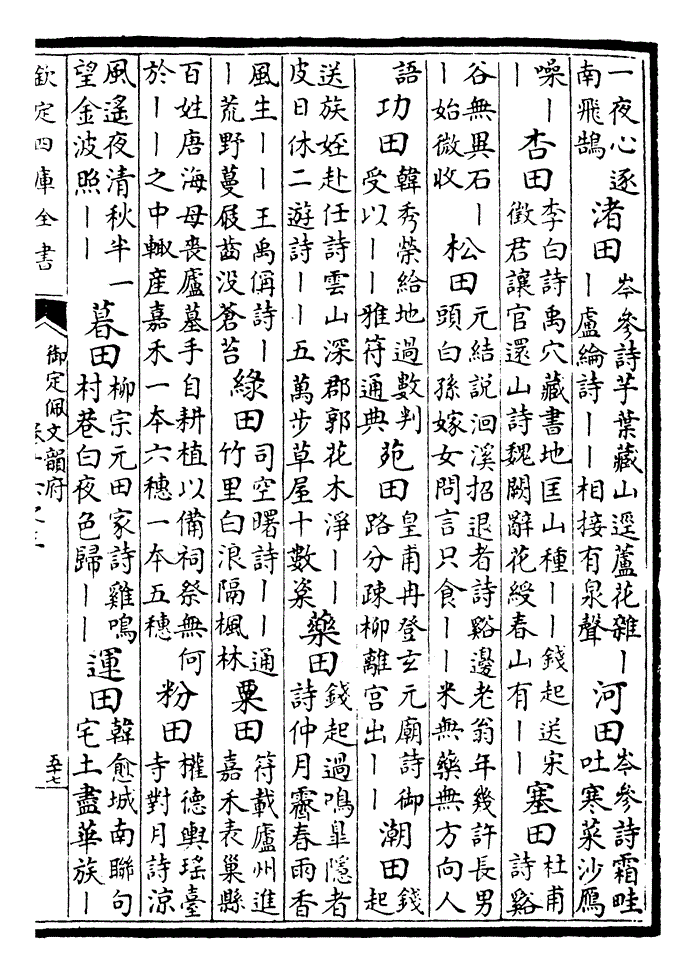 一夜心逐
南飛鵠
渚田
岑參詩芋葉藏山逕蘆花雜丨
丨盧綸詩丨丨相接有泉聲
河田
岑參詩霜畦
吐寒菜沙鴈
噪丨
丨
杏田
李白詩禹穴藏書地匡山種丨丨錢起送宋
徵君讓官還山詩魏闕辭花綬春山有丨丨
塞田
杜甫
詩谿
谷無異石丨
丨始微收
松田
元結說洄溪招退者詩谿邊老翁年幾許長男
頭白孫嫁女問言只食丨丨米無藥無方向人
語
功田
韓秀榮給地過數判
受以丨丨雅符通典
苑田
皇甫冉登玄元廟詩御
路分疎柳離宮出丨丨
潮田
錢
起
送族姪赴任詩雲山深郡郭花木淨丨丨
皮日休二遊詩丨丨五萬步草屋十數窠
藥田
錢起過鳴臯隱者
詩仲月霽春雨香
風生丨丨王禹偁詩丨
丨荒野蔓屐齒没蒼苔
綠田
司空曙詩丨丨通
竹里白浪隔楓林
粟田
符載廬州進
嘉禾表巢縣
百姓唐海母喪廬墓手自耕植以備祠祭無何
於丨丨之中輙産嘉禾一本六穗一本五穗
粉田
權德輿瑤臺
寺對月詩涼
風遙夜清秋半一
望金波照丨丨
暮田
柳宗元田家詩雞鳴
村巷白夜色歸丨丨
運田
韓愈城南聯句
宅土盡華族丨
欽定四庫全書
御定佩文韻府
五十七